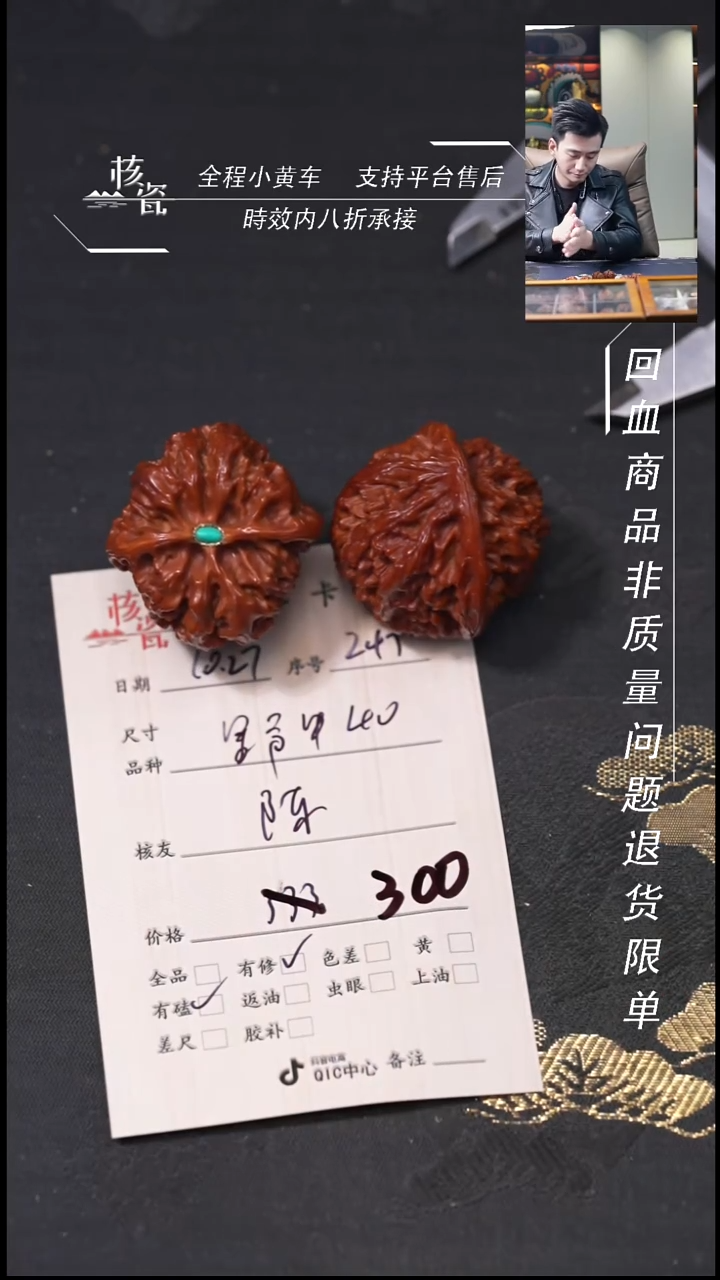 核瓷
全程小黄车 支持平台售后
時效内八折承接
回血商品非质量问题退货限单
核瓷
卡
日期 10.27 序号 247
尺寸
品种 40
核友 陈
价格 333 300
全品 有修 ✓ 色差 黄
有磕 ✓ 返油 虫眼 上油
差尺 胶补
抖音电商
QIC中心 备注